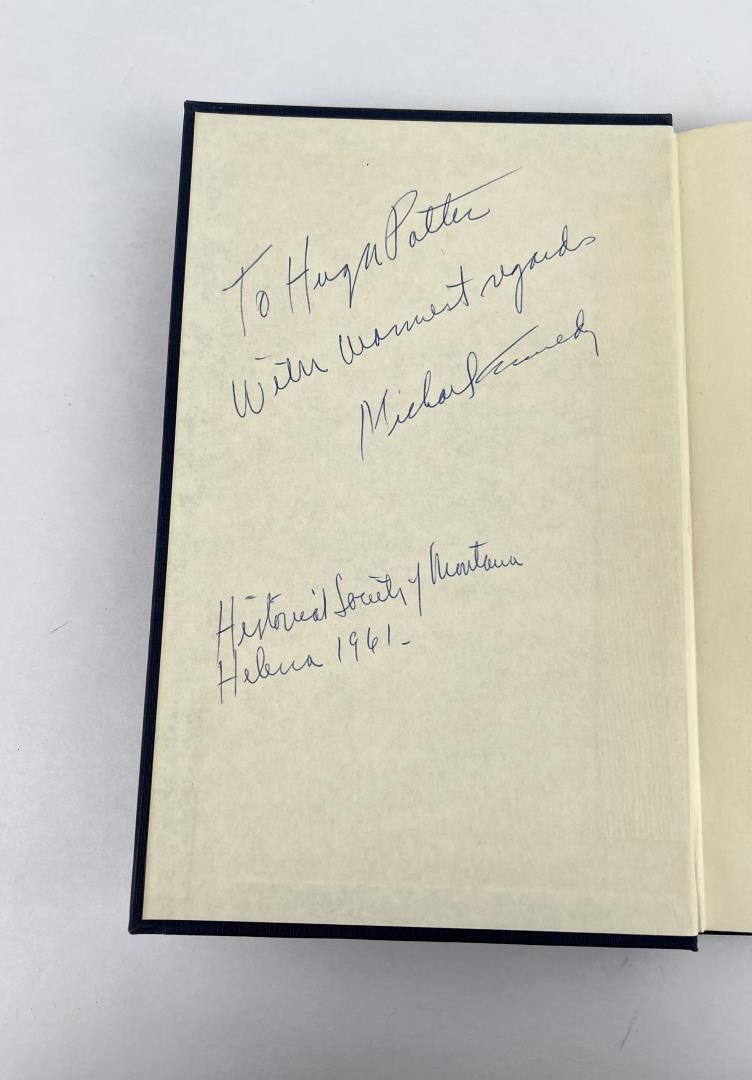 To Hugh Potter
With warmest regards
Michael Kennedy
Historical Society of Montana
Helena 1961-